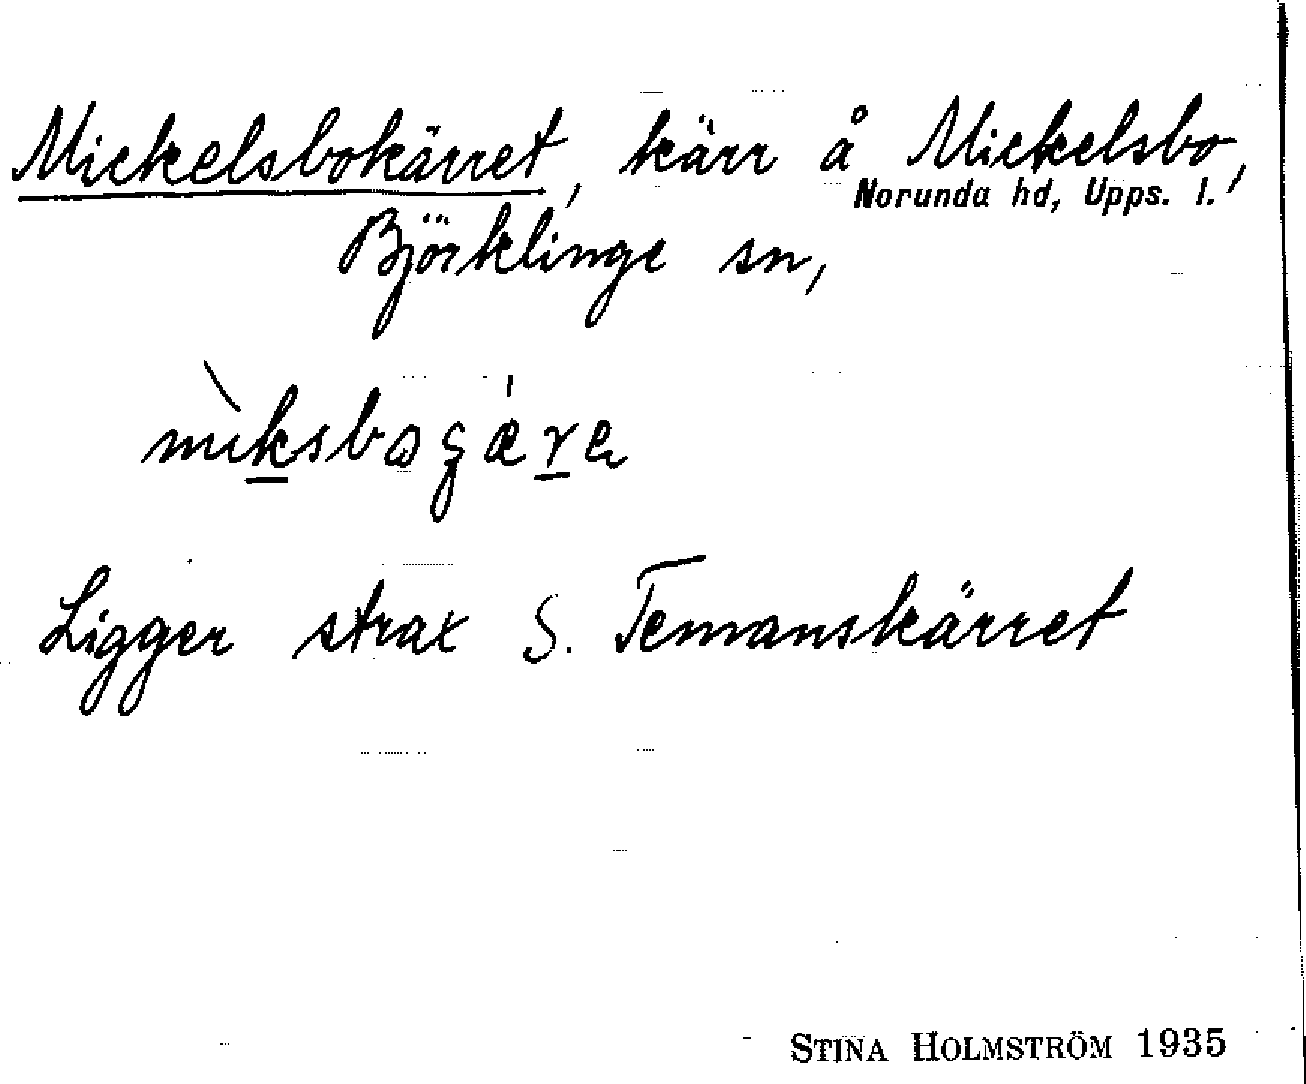 Mickelsbokärret, kärr å Mickelsbo,
Norunda hd, Upps. l.
Björklinge sn,
Ligger strax S. Temanskärret
STINA HOLMSTRÖM 1935